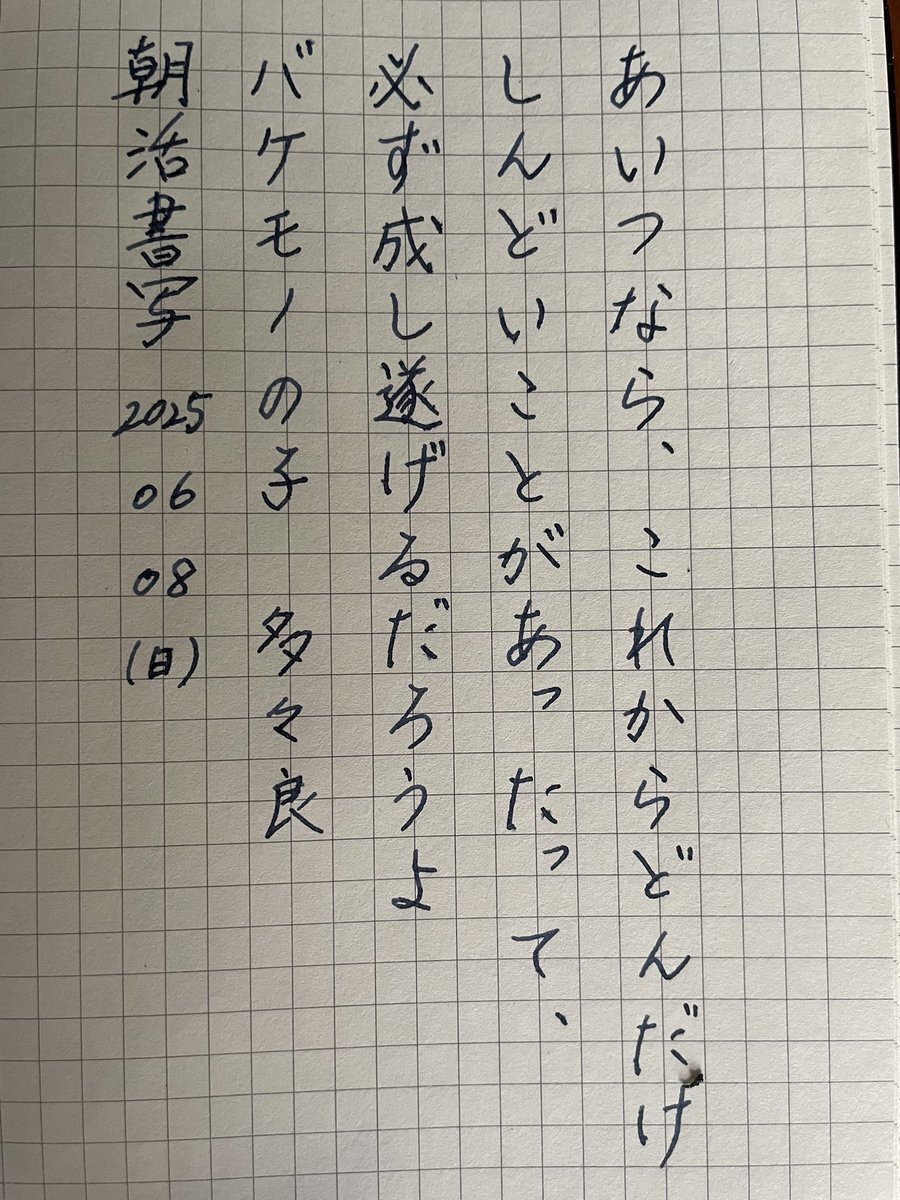 あいつなら、これからどんだけ
しんどいことがあっだって、
必ず成し遂げるだろうよ
バケモノの子 多々良
朝活書写 2025 06 08 (日)